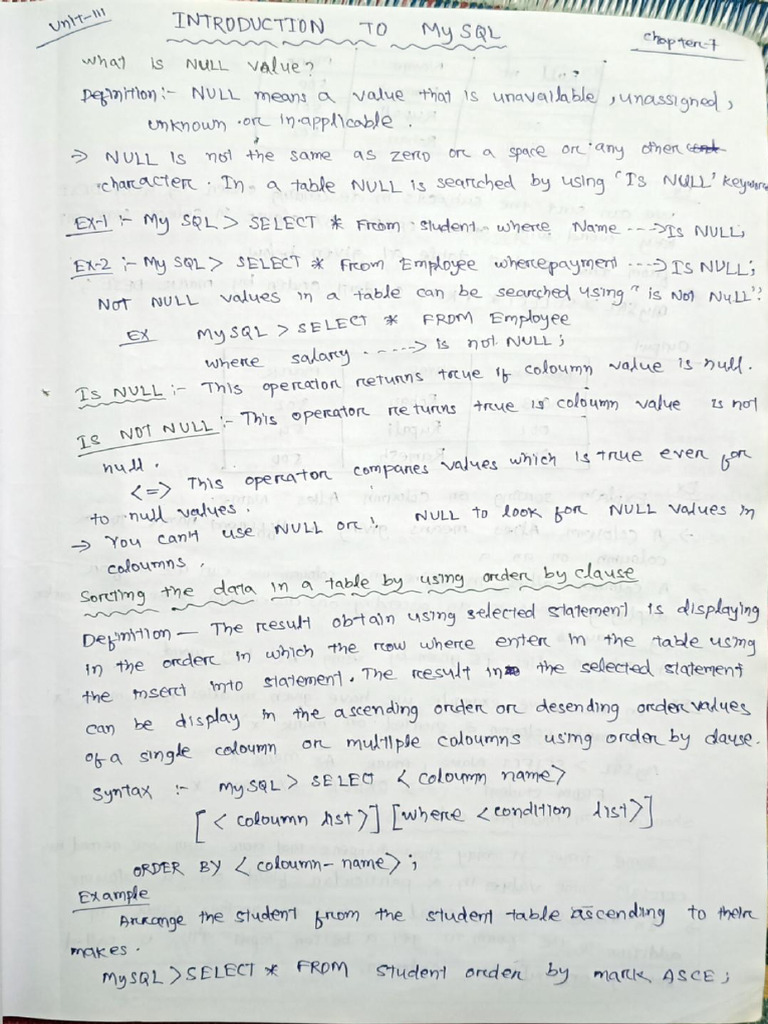 Unit-III
INTRODUCTION TO My SQL
Chapter-7
What is NULL value?
Definition:- NULL means a value that is unavailable, unassigned,
unknown or in-applicable.
⇒ NULL is not the same as zero or a space or any other
character. In a table NULL is searched by using "Is NULL" keyword
Ex-1 :- My SQL > SELECT * From student where Name ---> Is NULL;
Ex-2 :- My SQL > SELECT * From Employee where payment ---> Is NULL;
Not NULL values in a table can be searched using "is Not Null".
Ex MySQL > SELECT * FROM Employee
where salary -----> is not NULL;
Is NULL :- This operator returns true if coloumn value is null.
IS NOT NULL :- This operator returns true is coloumn value is not
null.
<=> This operator compares values which is true even for
to null values.
⇒ You can't use NULL or ! NULL to look for NULL values in
coloumns.
Sorting the data in a table by using order by clause
Definition — The result obtain using selected statement is displaying
in the order in which the row where enter in the table using
the insert into statement. The result in the selected statement
can be display in the ascending order or desending order values
of a single coloumn or multiple coloumns using order by clause.
Syntax :- MySQL > SELECT < coloumn name>
[< coloumn list>] [where <condition list>]
ORDER BY < coloumn-name> ;
Example
Arrange the student from the student table ascending to their
makes.
MySQL > SELECT * FROM student order by mark ASCE ;